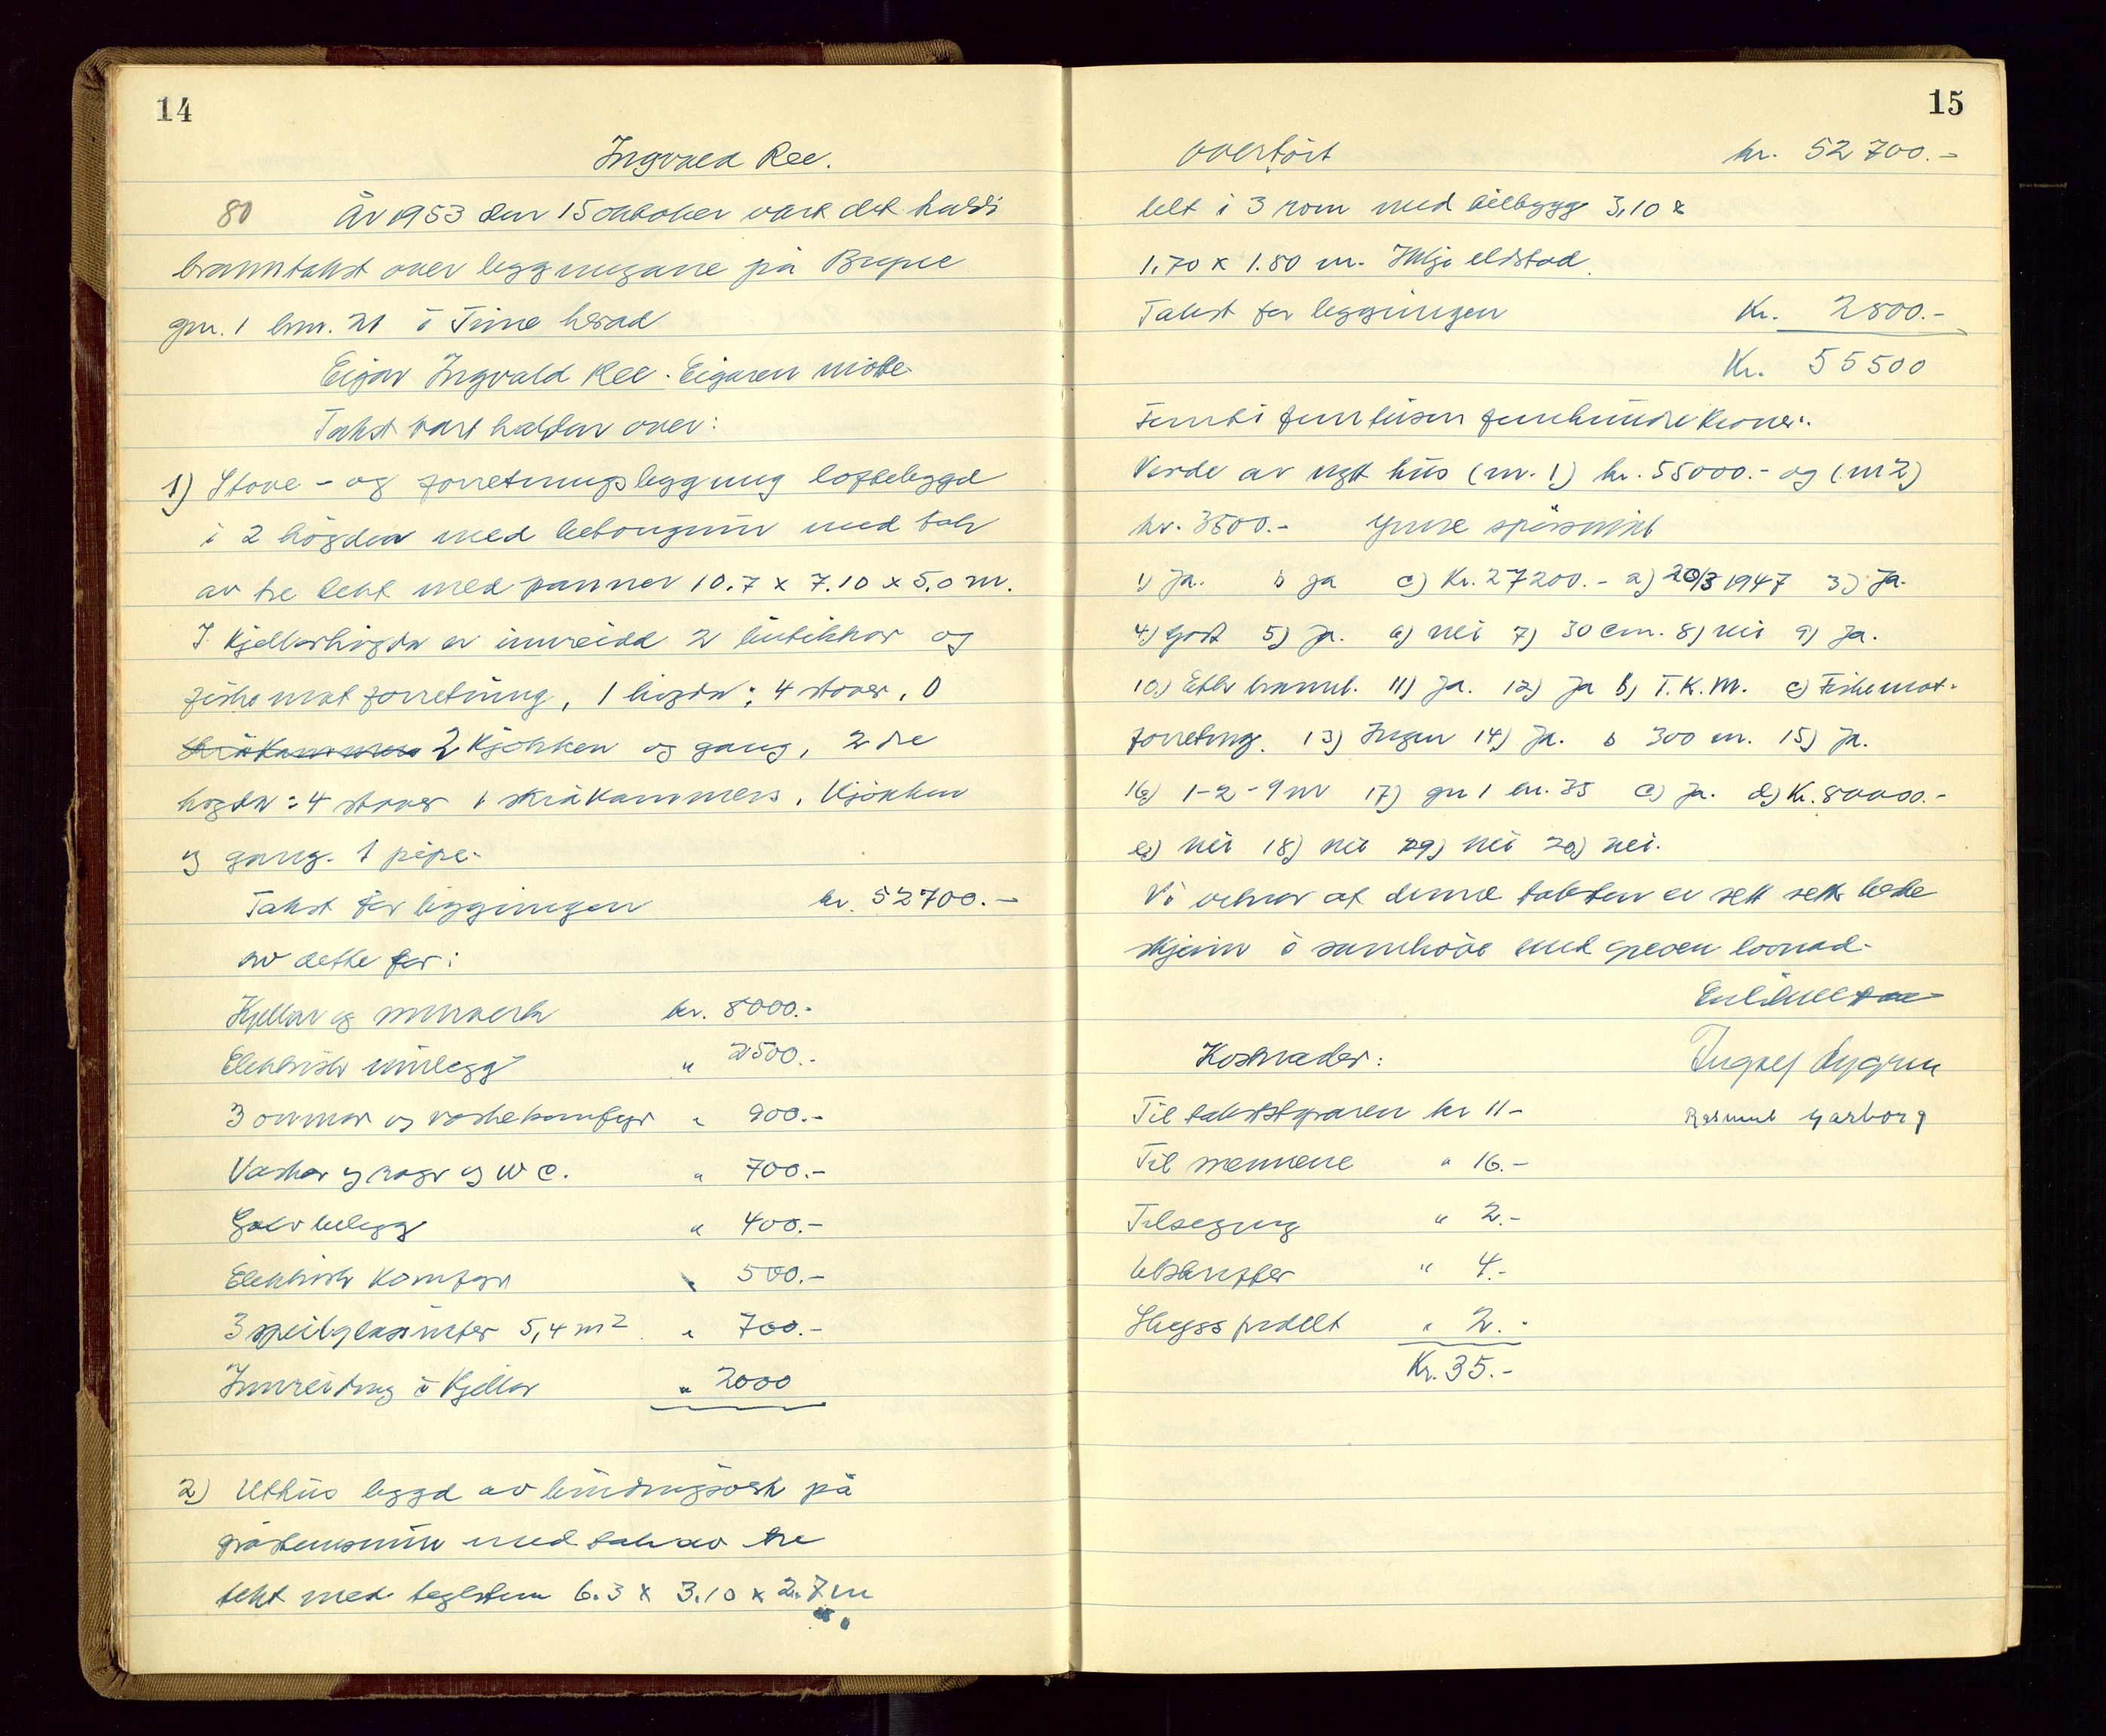 14
Ingvald Ree.
80 År 1953 den 15 oktober vart det haldi
branntakst over bygningane på Bryne
gnr. 1 bnr. 21 i Time herad
Eigar Ingvald Ree. Eigaren møtte
Takst vart halden over:
1) Stove- og forretningsbygning loftsbygd
i 2 högder med betongmur med tak
av tre tekt med panner 10.7 x 7.10 x 5.0 m.
I kjellarhögda er innreidd 2 butikkar og
fiskematforretning, 1 högda: 4 stover,
skråkammers 2 kjökken og gang, 2 dre
högda: 4 stover 1 skråkammers, kjökken
og gang. 1 pipe.
Takst for bygningen kr. 52700.-
av dette for:
Kjellar og murverk kr. 8000.-
Elektrisk innlegg " 2500.-
3 omnar og vaskekomfyr " 900.-
Vaskar og og W C. " 700.-
Golvbelegg " 400.-
Elektrisk komfyr " 500.-
3 speilglasruter 5,4 m2 " 700.-
Innreiding i kjellar " 2000
2) Uthus bygd av bindingsverk på
gråsteinsmur med tak av tre
tekt med teglstein 6.3 x 3.10 x 2.7 m
15
overført kr. 52 700.-
delt i 3 rom med tilbygg 3,10 x
1.70 x 1.80 m. Ikkje eldstad.
Takst for bygningen Kr. 2800.-
Kr. 55500
Femti fem tusen femhundre kroner.
Verde av nytt hus (nr. 1) kr. 55000.- og (nr 2)
kr. 3500.- Ymse spörsmål
1) Ja. b ja c) Kr. 27200.- 2) 20/3 1947 3) Ja.
4) Godt 5) Ja. 6) Nei 7) 30 cm. 8) Nei 9) Ja.
10) Etter brannl. 11) Ja. 12) Ja b) T.K.M. c) Fiskemat-
forretning. 13) Ingen 14) Ja. b 300 m. 15) Ja.
16) 1-2-9 m 17) gn 1 bn. 35 c) Ja. d) Kr. 80000.-
e) Nei 18) Nei 19) Nei 20) Nei.
Vi vitnar at denne taksten er sett etter beste
skjönn i samhöve med lovnad.
Kostnader: Ingolf Lygren
Til takststyraren kr 11-
Rasmus Garborg
Til mennene " 16.-
Tilseging " 2.-
Utskrifter " 4.-
Skyss fordelt " 2.-
Kr. 35.-